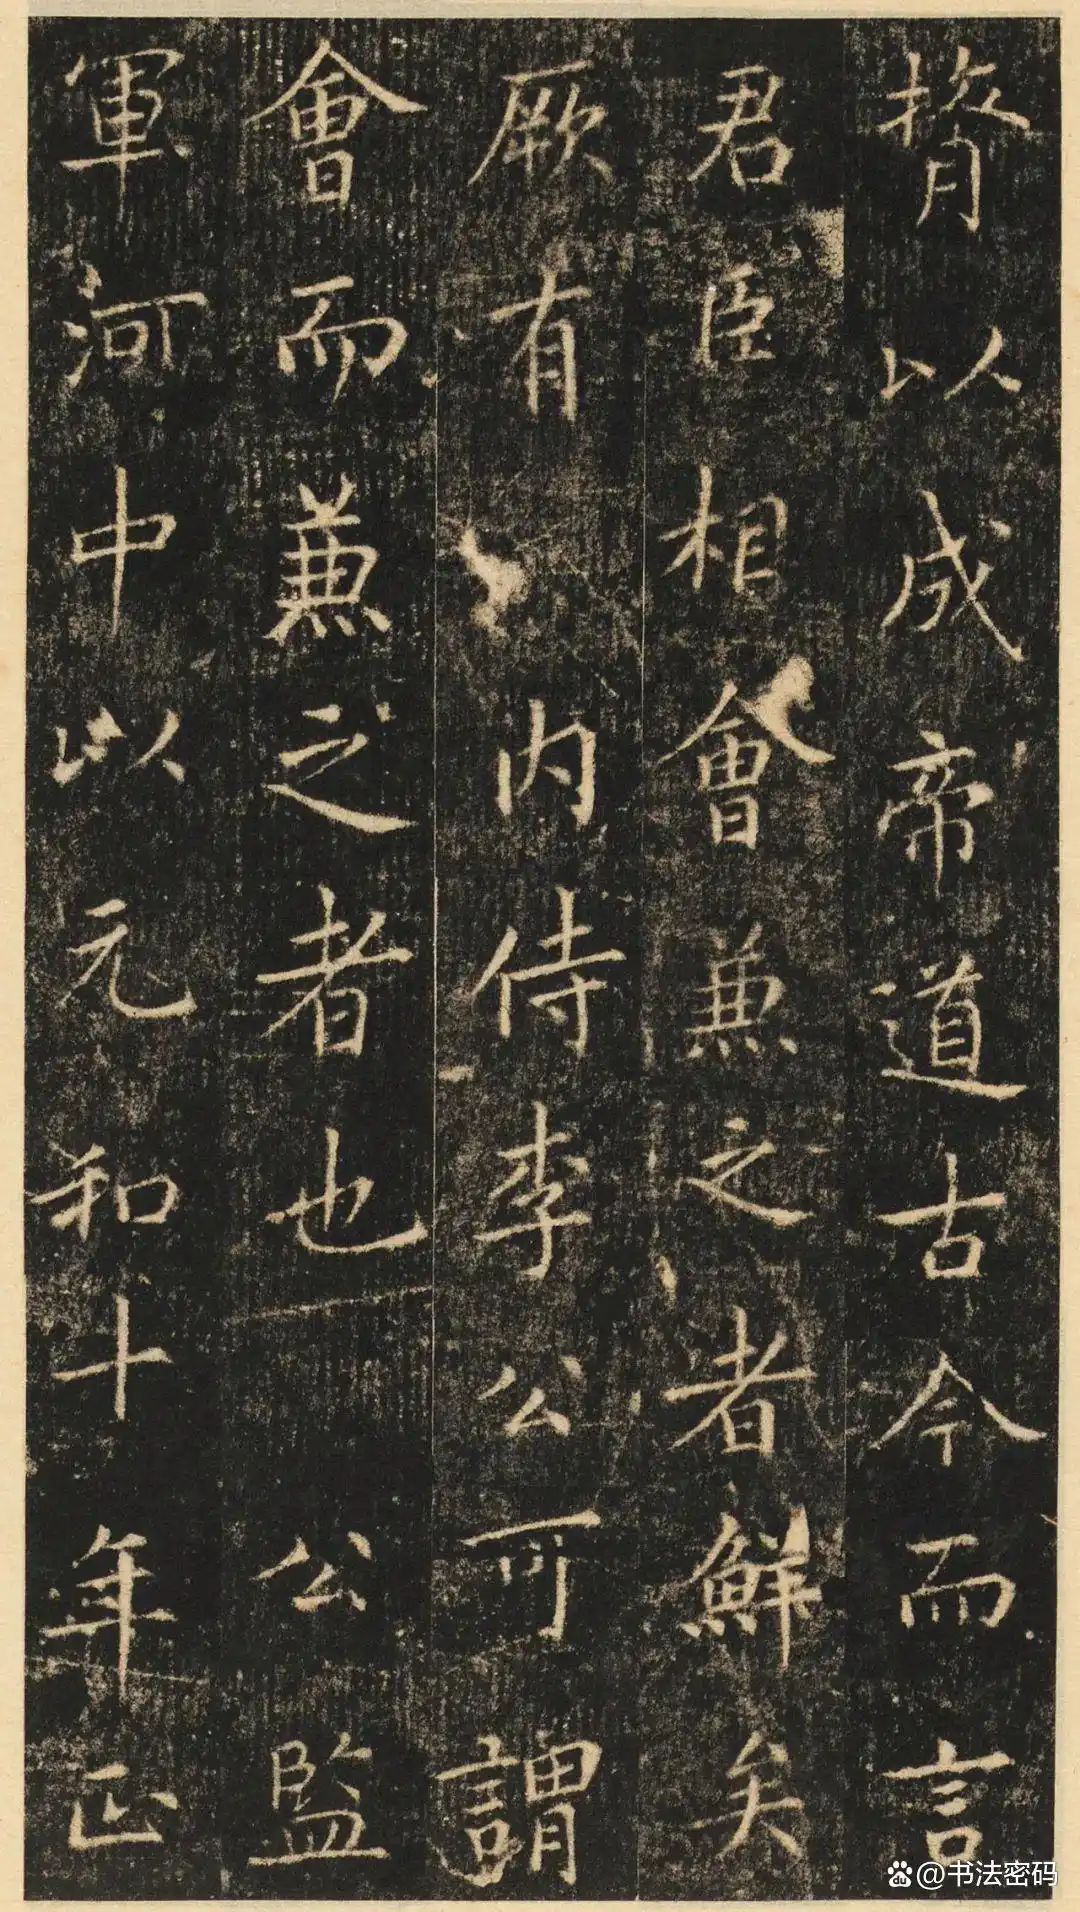 膂以成帝道古今而言
君臣相會兼之者鮮矣
厥有内侍李公可謂
會而兼之者也 公監
軍河中以元和十年正
@书法密码